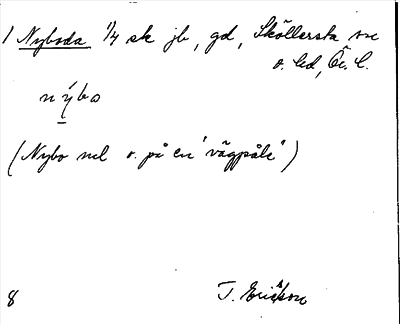 1 Nyboda 1/4 sk jb, gd, Sköllersta sn
o. hd, Ör. l.
nýbo
(Nybo nul o. på en "vägpåle")
8
T. Ericson